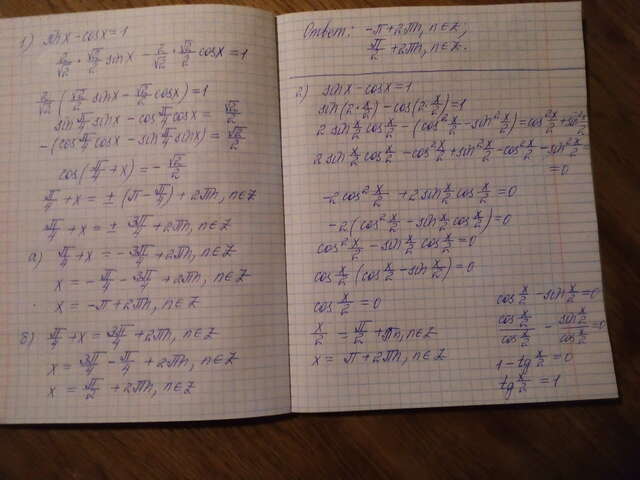 1) sin x - cos x = 1
2/√2 · √2/2 sin x - 2/√2 · √2/2 cos x = 1
2/√2 (√2/2 sin x - √2/2 cos x) = 1
sin π/4 sin x - cos π/4 cos x = √2/2
-(cos π/4 cos x - sin π/4 sin x) = √2/2
cos(π/4 + x) = - √2/2
π/4 + x = ± (π - π/4) + 2πn, n∈Z
π/4 + x = ± 3π/4 + 2πn, n∈Z
а) π/4 + x = - 3π/4 + 2πn, n∈Z
x = - π/4 - 3π/4 + 2πn, n∈Z
x = -π + 2πn, n∈Z
б) π/4 + x = 3π/4 + 2πn, n∈Z
x = 3π/4 - π/4 + 2πn, n∈Z
x = π/2 + 2πn, n∈Z
Ответ: -π + 2πn, n∈Z;
π/2 + 2πn, n∈Z.
2) sin x - cos x = 1
sin(2·x/2) - cos(2·x/2) = 1
2 sin x/2 cos x/2 - (cos² x/2 - sin² x/2) = cos² x/2 + sin² x/2
2 sin x/2 cos x/2 - cos² x/2 + sin² x/2 - cos² x/2 - sin² x/2 = 0
-2cos² x/2 + 2 sin x/2 cos x/2 = 0
-2(cos² x/2 - sin x/2 cos x/2) = 0
cos² x/2 - sin x/2 cos x/2 = 0
cos x/2 (cos x/2 - sin x/2) = 0
cos x/2 = 0
x/2 = π/2 + πn, n∈Z
x = π + 2πn, n∈Z
cos x/2 - sin x/2 = 0
cos x/2 / cos x/2 - sin x/2 / cos x/2 = 0
1 - tg x/2 = 0
tg x/2 = 1